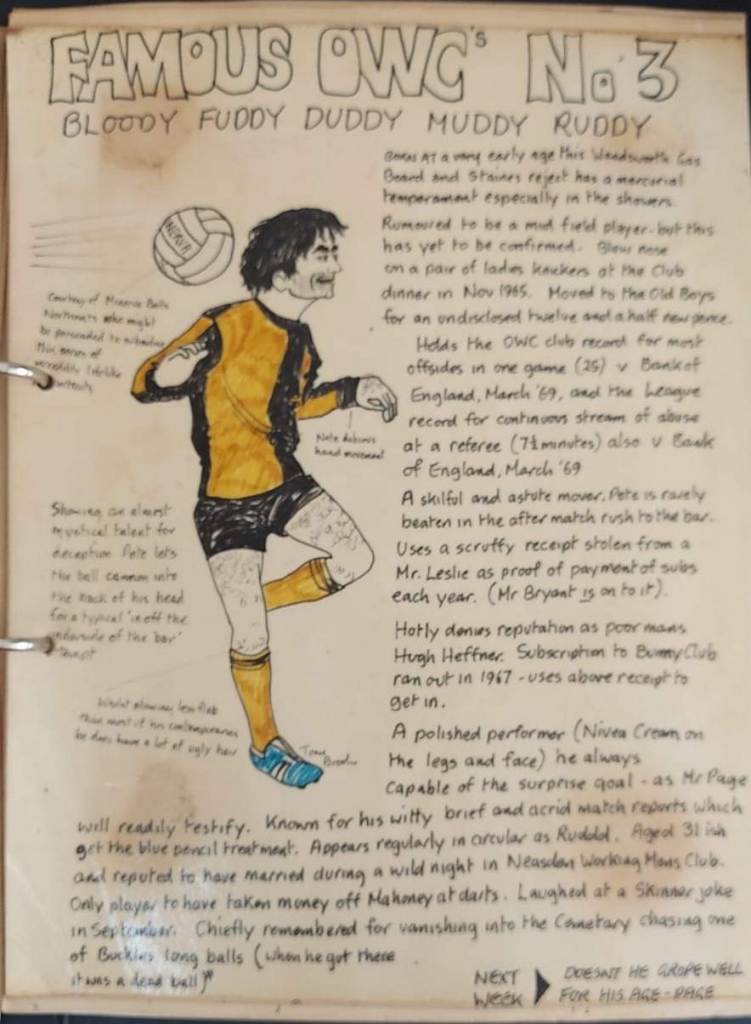 FAMOUS OWC's No. 3
BLOODY FUDDY DUDDY MUDDY RUDDY
BORN AT a very early age this Wandsworth Gas
Board and Staines reject has a mercurial
temperament especially in the showers.
Rumoured to be a mid field player - but this
has yet to be confirmed. Blew nose
on a pair of ladies knickers at the Club
dinner in Nov 1965. Moved to the Old Boys
for an undisclosed twelve and a half new pence.
Holds the OWC club record for most
offsides in one game (25) v Bank of
England, March '69, and the League
record for continuous stream of abuse
at a referee (7½ minutes) also v Bank
of England, March '69
A skilful and astute mover. Pete is rarely
beaten in the after match rush to the bar.
Uses a scruffy receipt stolen from a
Mr. Leslie as proof of payment of subs
each year. (Mr Bryant is on to it).
Hotly denies reputation as poor mans
Hugh Heffner. Subscription to Bunny Club
ran out in 1967 - uses above receipt to
get in.
A polished performer (Nivea Cream on
the legs and face) he always
capable of the surprise goal - as Mr Page
will readily testify. Known for his witty brief and acrid match reports which
get the blue pencil treatment. Appears regularly in circular as Ruddd. Aged 31 ish
and reputed to have married during a wild night in Neasden Working Mens Club.
Only player to have taken money off Mahoney at darts. Laughed at a Skinner joke
in September. Chiefly remembered for vanishing into the Cemetary chasing one
of Buckles long balls (when he got there
it was a dead ball)"
NEXT WEEK
DOESNT HE GROPE WELL
FOR HIS AGE - PAGE
MINERVA
Courtesy of Minerva Balls
who might
be persuaded to subsidise
this series of
incredibly lifelike
portraits
Note dubious
hand movement
Showing an almost
mystical talent for
deception Pete lets
the ball cannon into
the back of his head
for a typical 'in off the
underside of the bar'
attempt
Whilst showing less flab
than most of his contemporaries
he does have a lot of ugly hair
Tony